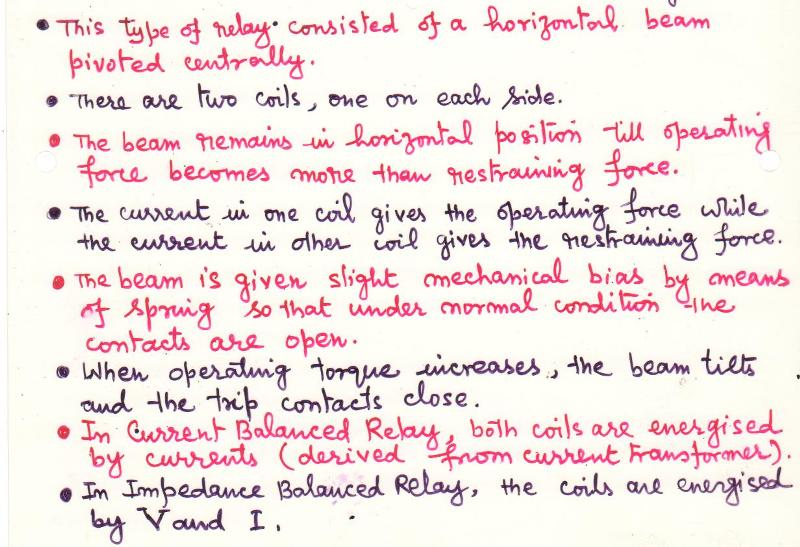 • This type of relay consisted of a horizontal beam
pivoted centrally.
• There are two coils, one on each side.
• The beam remains in horizontal position till operating
force becomes more than restraining force.
• The current in one coil gives the operating force while
the current in other coil gives the restraining force.
• The beam is given slight mechanical bias by means
of spring so that under normal condition the
contacts are open.
• When operating torque increases, the beam tilts
and the trip contacts close.
• In Current Balanced Relay, both coils are energised
by currents (derived from current transformer).
• In Impedance Balanced Relay, the coils are energised
by V and I.